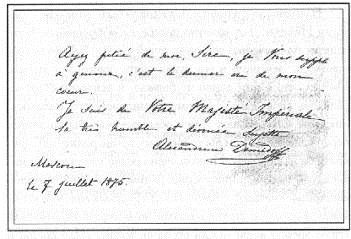 Ayez pitié de moi, Sire, je Vous supplie
à genoux, c'est le dernier cri de mon
coeur.
Je suis de Votre Majesté Impériale
la très humble et dévouée sujette
Alexandrine Demidoff
Moscou
le 7 juillet 1875.